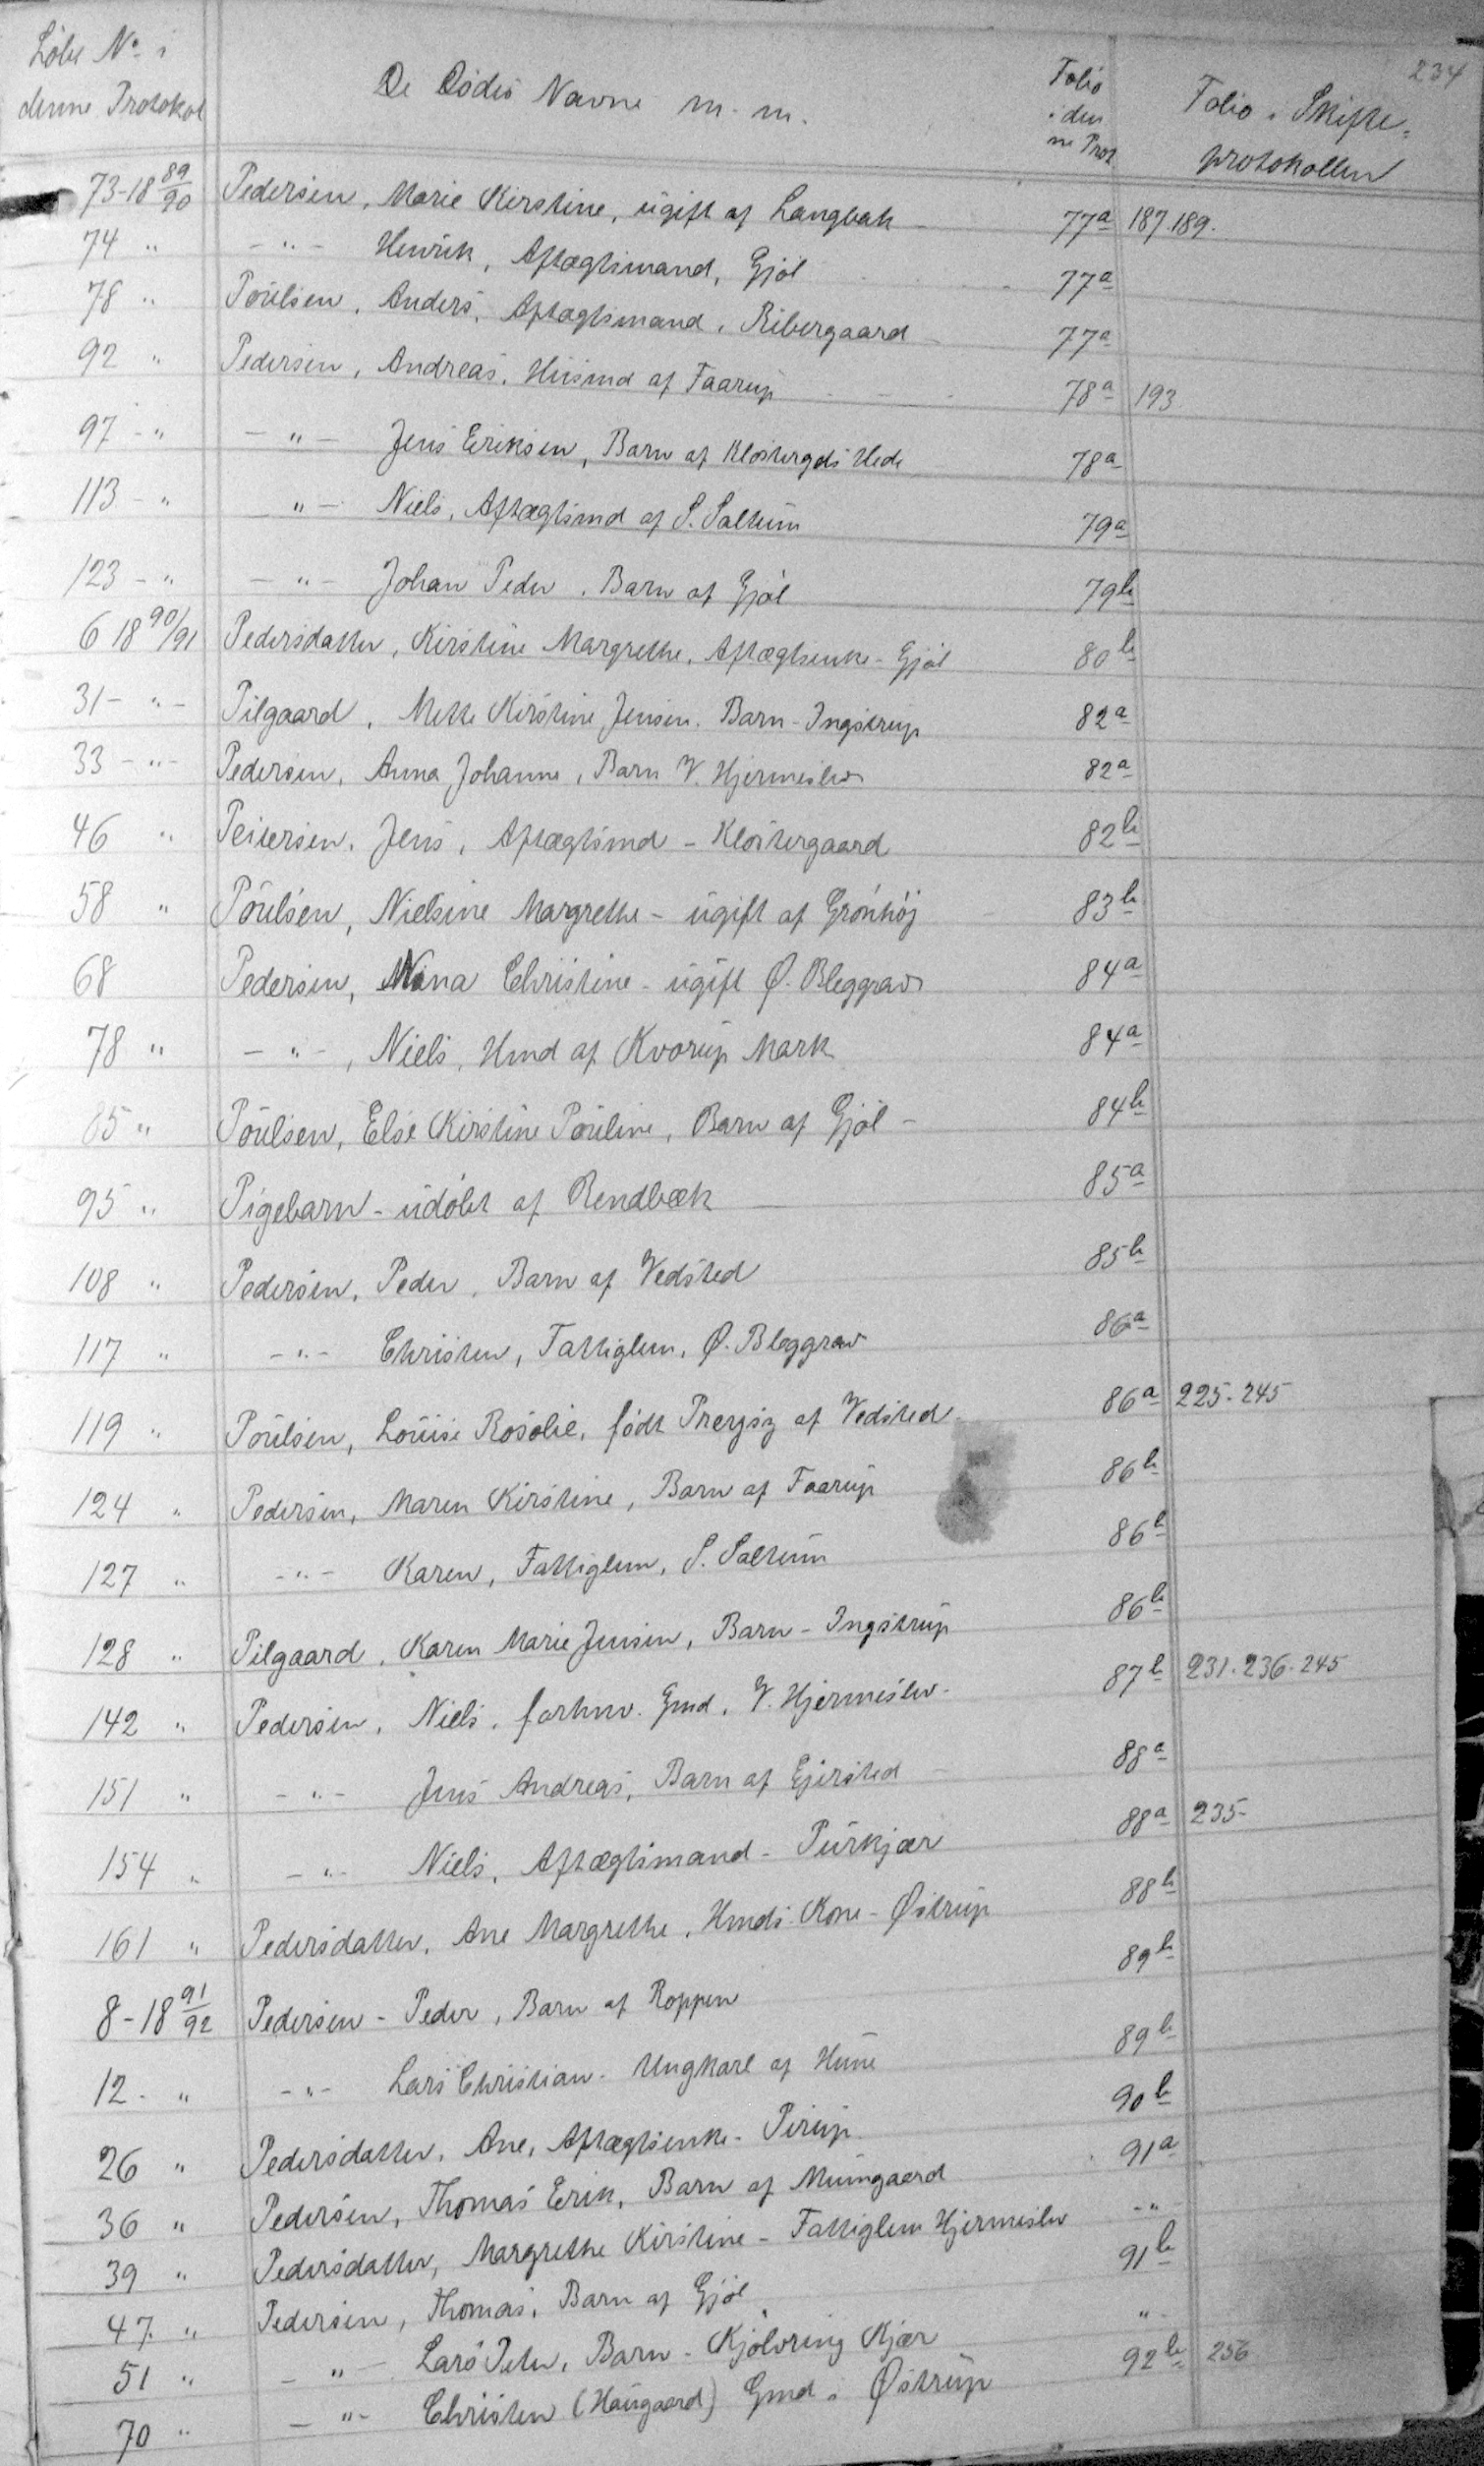 234
Løbe No i denne Protokol | De Dødes Navne m. m. | Folio i denne Prot | Folio i Skifteprotokollen
73-18 89/90 Pedersen, Marie Kirstine, ugift af Langbak - 77a 187.189.
74 " -"- Henrik, Aftægtsmand, Gjøl 77a
78 " Poulsen, Anders, Aftægtsmand, Ribergaard - 77a
92 " Pedersen, Andreas, Husmd af Faarup - - - 78a 193
97 -" -"- Jens Eriksen, Barn af Klostergds Hede 78a
113 -" "- Niels, Aftægtsmd af S. Saltum 79a
123 -" -"- Johan Peder, Barn af Gjøl 79b
6 18 90/91 Pedersdatter, Kirstine Margrethe, Aftægtsenke - Gjøl 80b
31- "- Pilgaard, Mette Kirstine Jensen. Barn - Ingstrup 82a
33 -"- Pedersen, Anna Johanne, Barn V. Hjermeslev 82a
46 " Petersen, Jens, Aftægtsmd - Klostergaard 82b
58 " Poulsen, Nielsine Margrethe - ugift af Grønhøj 83b
68 Pedersen, Nina Christine - ugift Ø. Bleggrav 84a
78 " -"-, Niels, Hmd af Kvorup Mark 84a
85 " Poulsen, Else Kirstine Pouline, Barn af Gjøl - 84b
95 " Pigebarn - udøbt af Rendbæk 85a
108 " Pedersen, Peder, Barn af Vedsted 85b
117 " -"- Christen, Fattiglem, Ø. Bleggrav 86a
119 " Poulsen, Louise Rosalie, født af Vedsted - 86a 225-245
124 " Pedersen, Maren Kirstine, Barn af Faarup 86b
127 " -"- Karen, Fattiglem, S. Saltum 86b
128 " Pilgaard, Karen Marie Jensen, Barn - Ingstrup 86b
142 " Pedersen, Niels, forhnv. Gmd, V. Hjermeslev - 87b 231.236-245
151 " -"- Jens Andreas, Barn af Ejersted - 88a
154 " -"- Niels, Aftægtsmand - Purkjær 88a 235-
161 " Pedersdatter, Ane Margrethe, Hmds Kone - Østrup 88b
8-18 91/92 Pedersen - Peder, Barn af Roppen 89b
12 - " -"- Lars Christian - Ungkarl af Hune 89b
26 " Pedersdatter, Ane, Aftægtsenke - Pirup 90b
36 " Pedersen, Thomas Erik, Barn af Mumgaard 91a
39 " Pedersdatter, Margrethe Kirstine - Fattiglem Hjermeslev -"-
47. " Pedersen, Thomas, Barn af Gjøl 91b
51 " -"- Lars Peter, Barn - Kjølvring Kjær "
70 " -"- Christen (Haugaard) Gmd i Østrup 92b 256